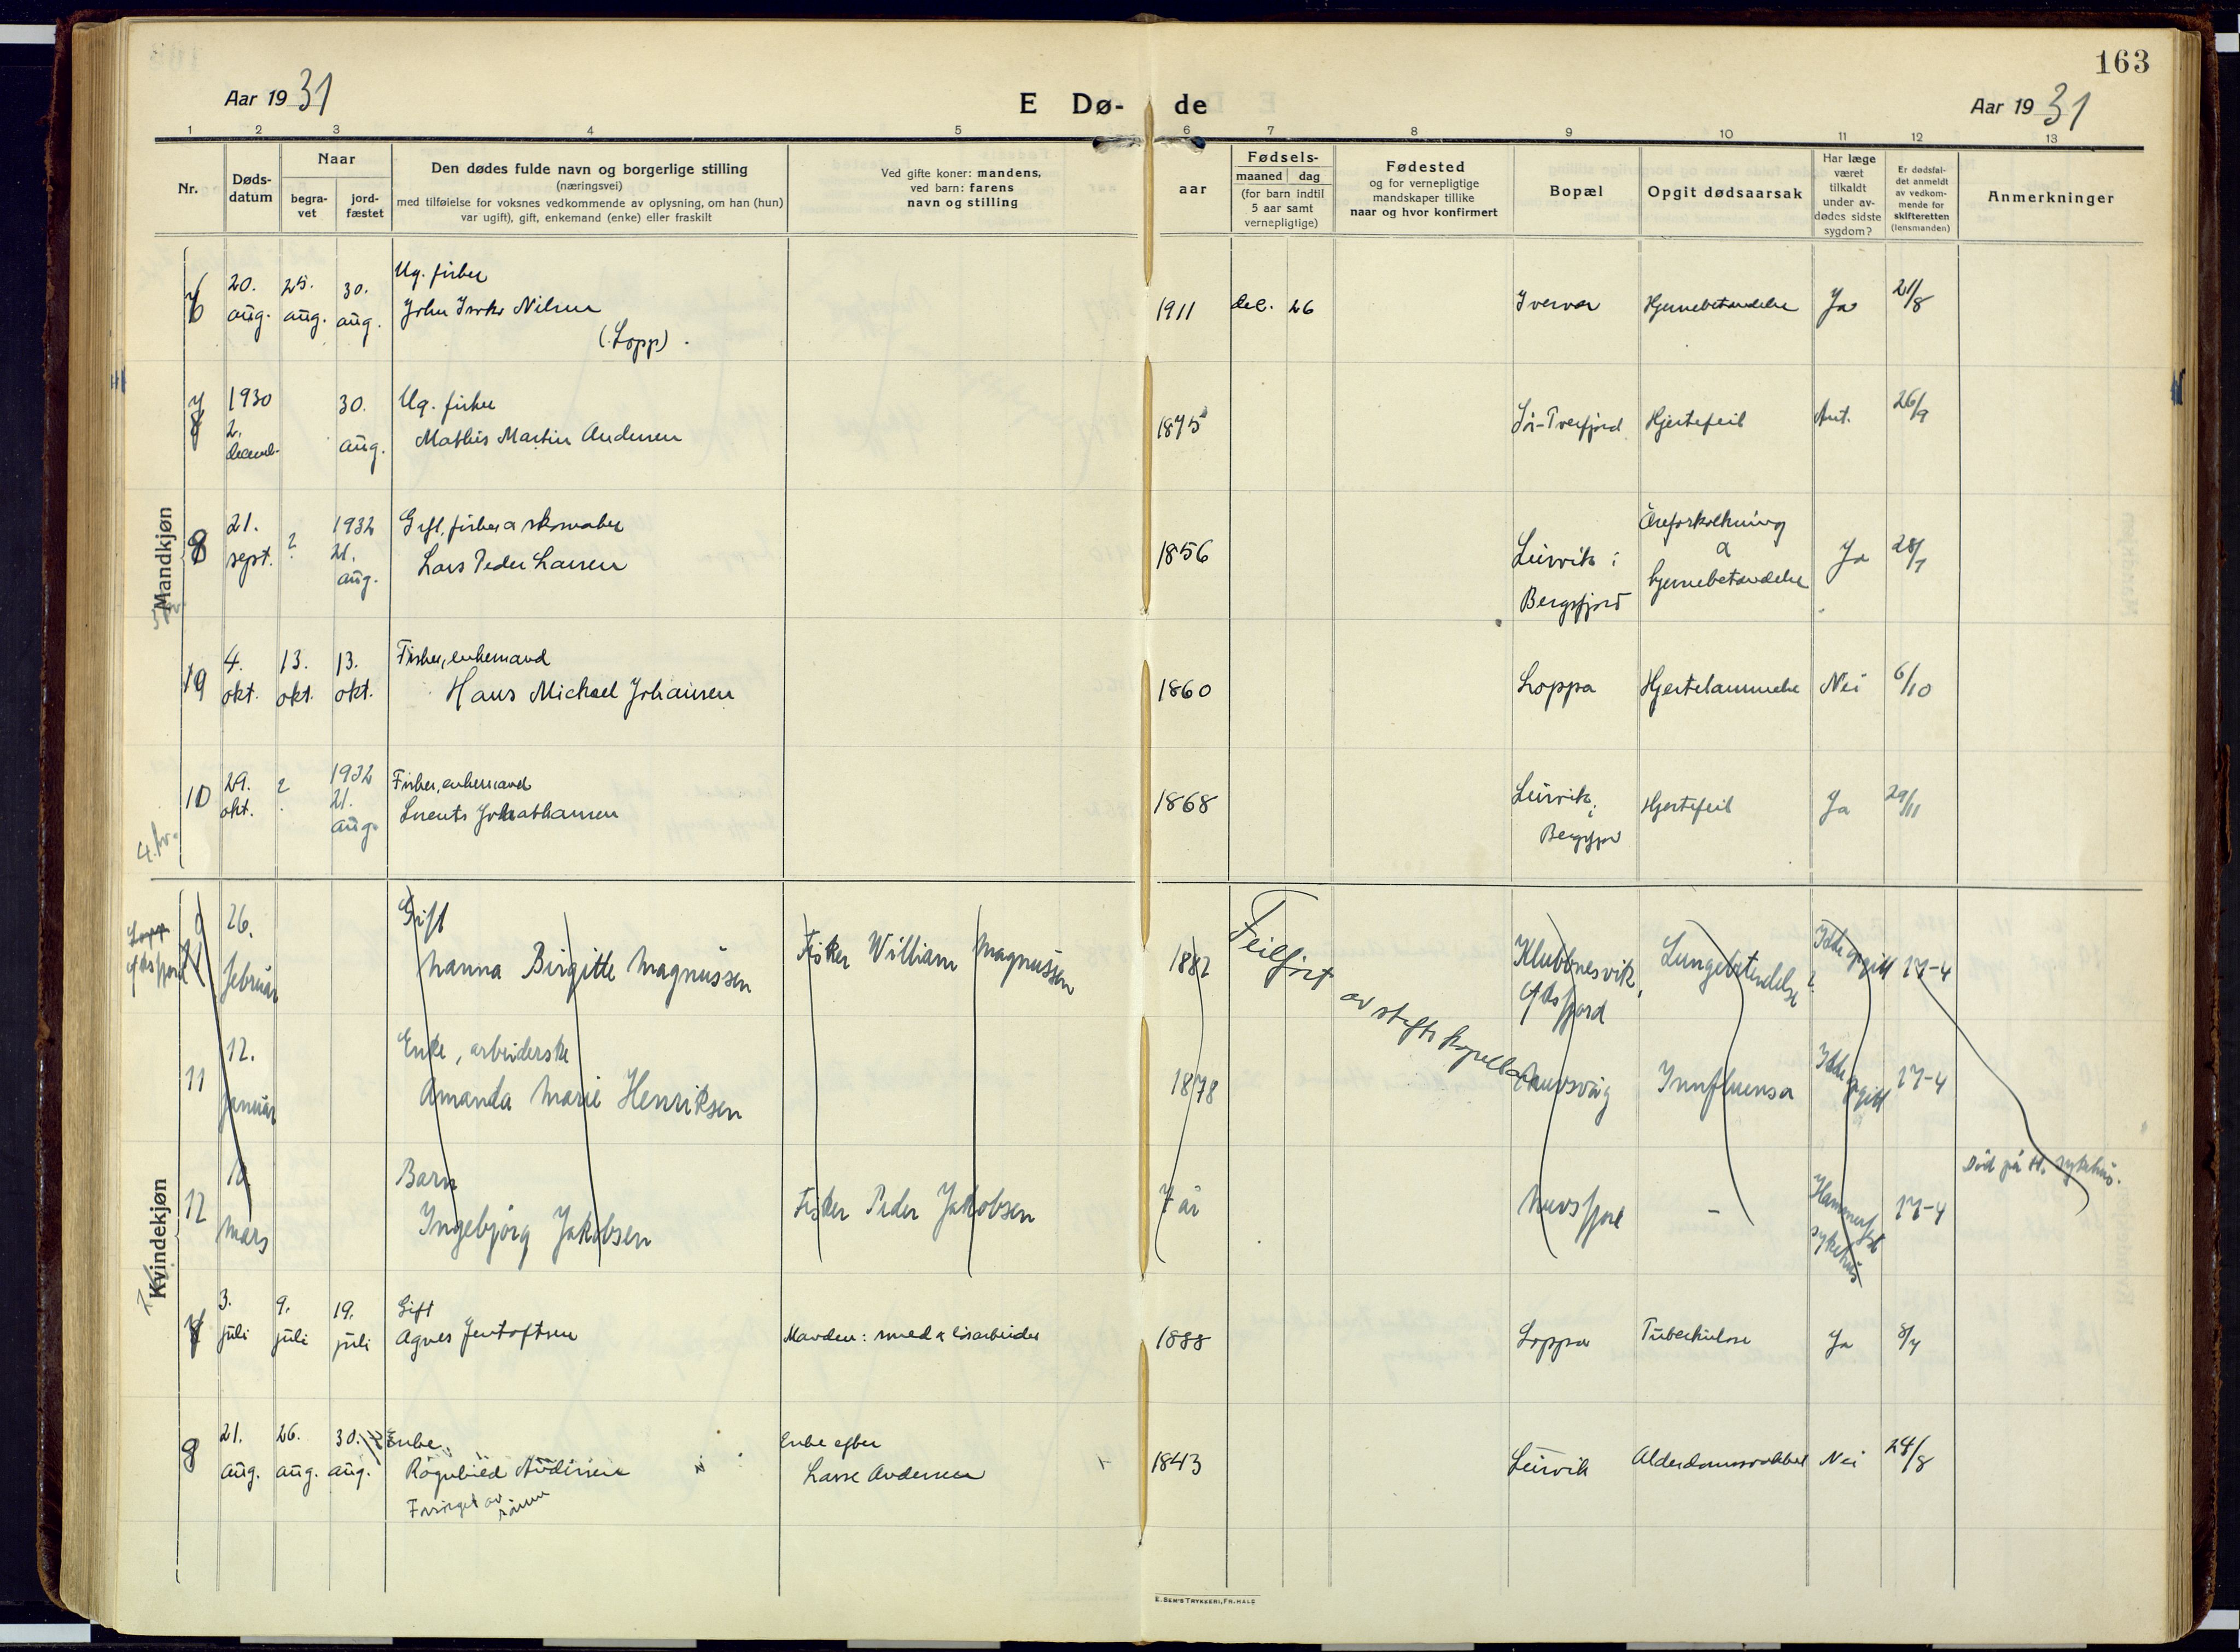 163
Aar 1931
E Dø- de
Aar 1931
1 2 3 4 5 6 7 8 9 10 11 12 13
Nr.
Døds-
datum
Naar
begra-
vet
jord-
fæstet
Den dødes fulde navn og borgerlige stilling
(næringsvei)
med tilføielse for voksnes vedkommende av oplysning, om han (hun)
var ugift), gift, enkemand (enke) eller fraskilt
Ved gifte koner: mandens,
ved barn: farens
navn og stilling
aar
Fødsels-
maaned dag
(for barn indtil
5 aar samt
vernepligtige)
Fødested
og for vernepligtige
mandskaper tillike
naar og hvor konfirmert
Bopæl
Opgit dødsaarsak
Har læge
været
tilkaldt
under av-
dødes sidste
sygdom?
Er dødsfal-
det anmeldt
av vedkom-
mende for
skifteretten
(lensmanden)
Anmerkninger
Mandkjøn
6 20. aug. 25. aug. 30. aug.
Ug. fisker
John Nilsen
(Lopp).
1911 dec. 26 Hjernebetændelse Ja 21/8
7 1930 2. decemb. 30. aug.
Ug. fisker
Mathis Martin Andersen
1875 Sør-Tverfjord Hjertefeil Ant. 26/9
8 21. sept. ? 1932 21. aug.
Gift, fisker & skomaker
Lars Peder Larsen
1856 Leirvik i Bergsfjord Åreforkalkning & hjernebetændelse Ja 28/7
9 4. okt. 13. okt. 13. okt.
Fisker, enkemand
Hans Michael Johansen
1860 Loppa Hjertelammelse Nei 6/10
10 29. okt. ? 1932 21. aug.
Fisker, enkemand
Lorents Johathansen
1868 Leirvik i Bergsfjord Hjertefeil Ja 29/11
Kvindekjøn
26. februar
Gift
Nanna Birgitte Magnussen
Fisker William Magnussen
1882 Klubbnesvik, Øksfjord Lungebetendelse ? Ikke opgitt 17-4
Feilført av stiftskapellan
11 12. januar
Enke, arbeiderske
Amanda Marie Henriksen
1878 Innfluensa Ikke opgitt 17-4
12 10. mars
Barn
Ingebjørg Jakobsen
Fisker Peder Jakobsen
7 år Nuvsfjord - Hammerfest sykehus 17-4 Død på H. sykehus.
7 3. juli 9. juli 19. juli
Gift
Agnes Jentoftsen
Manden: smed & løsarbeider
1888 Loppa Tuberkulose Ja 8/7
8 21. aug. 26. aug. 30. aug.
Enke
Rognhild Andersen
Forsørget av sønnen
Enke efter
Lasse Andersen
1843 Leirvik Alderdomssvakhet Nei 24/8
E. SEM'S TRYKKERI, FR.HALD